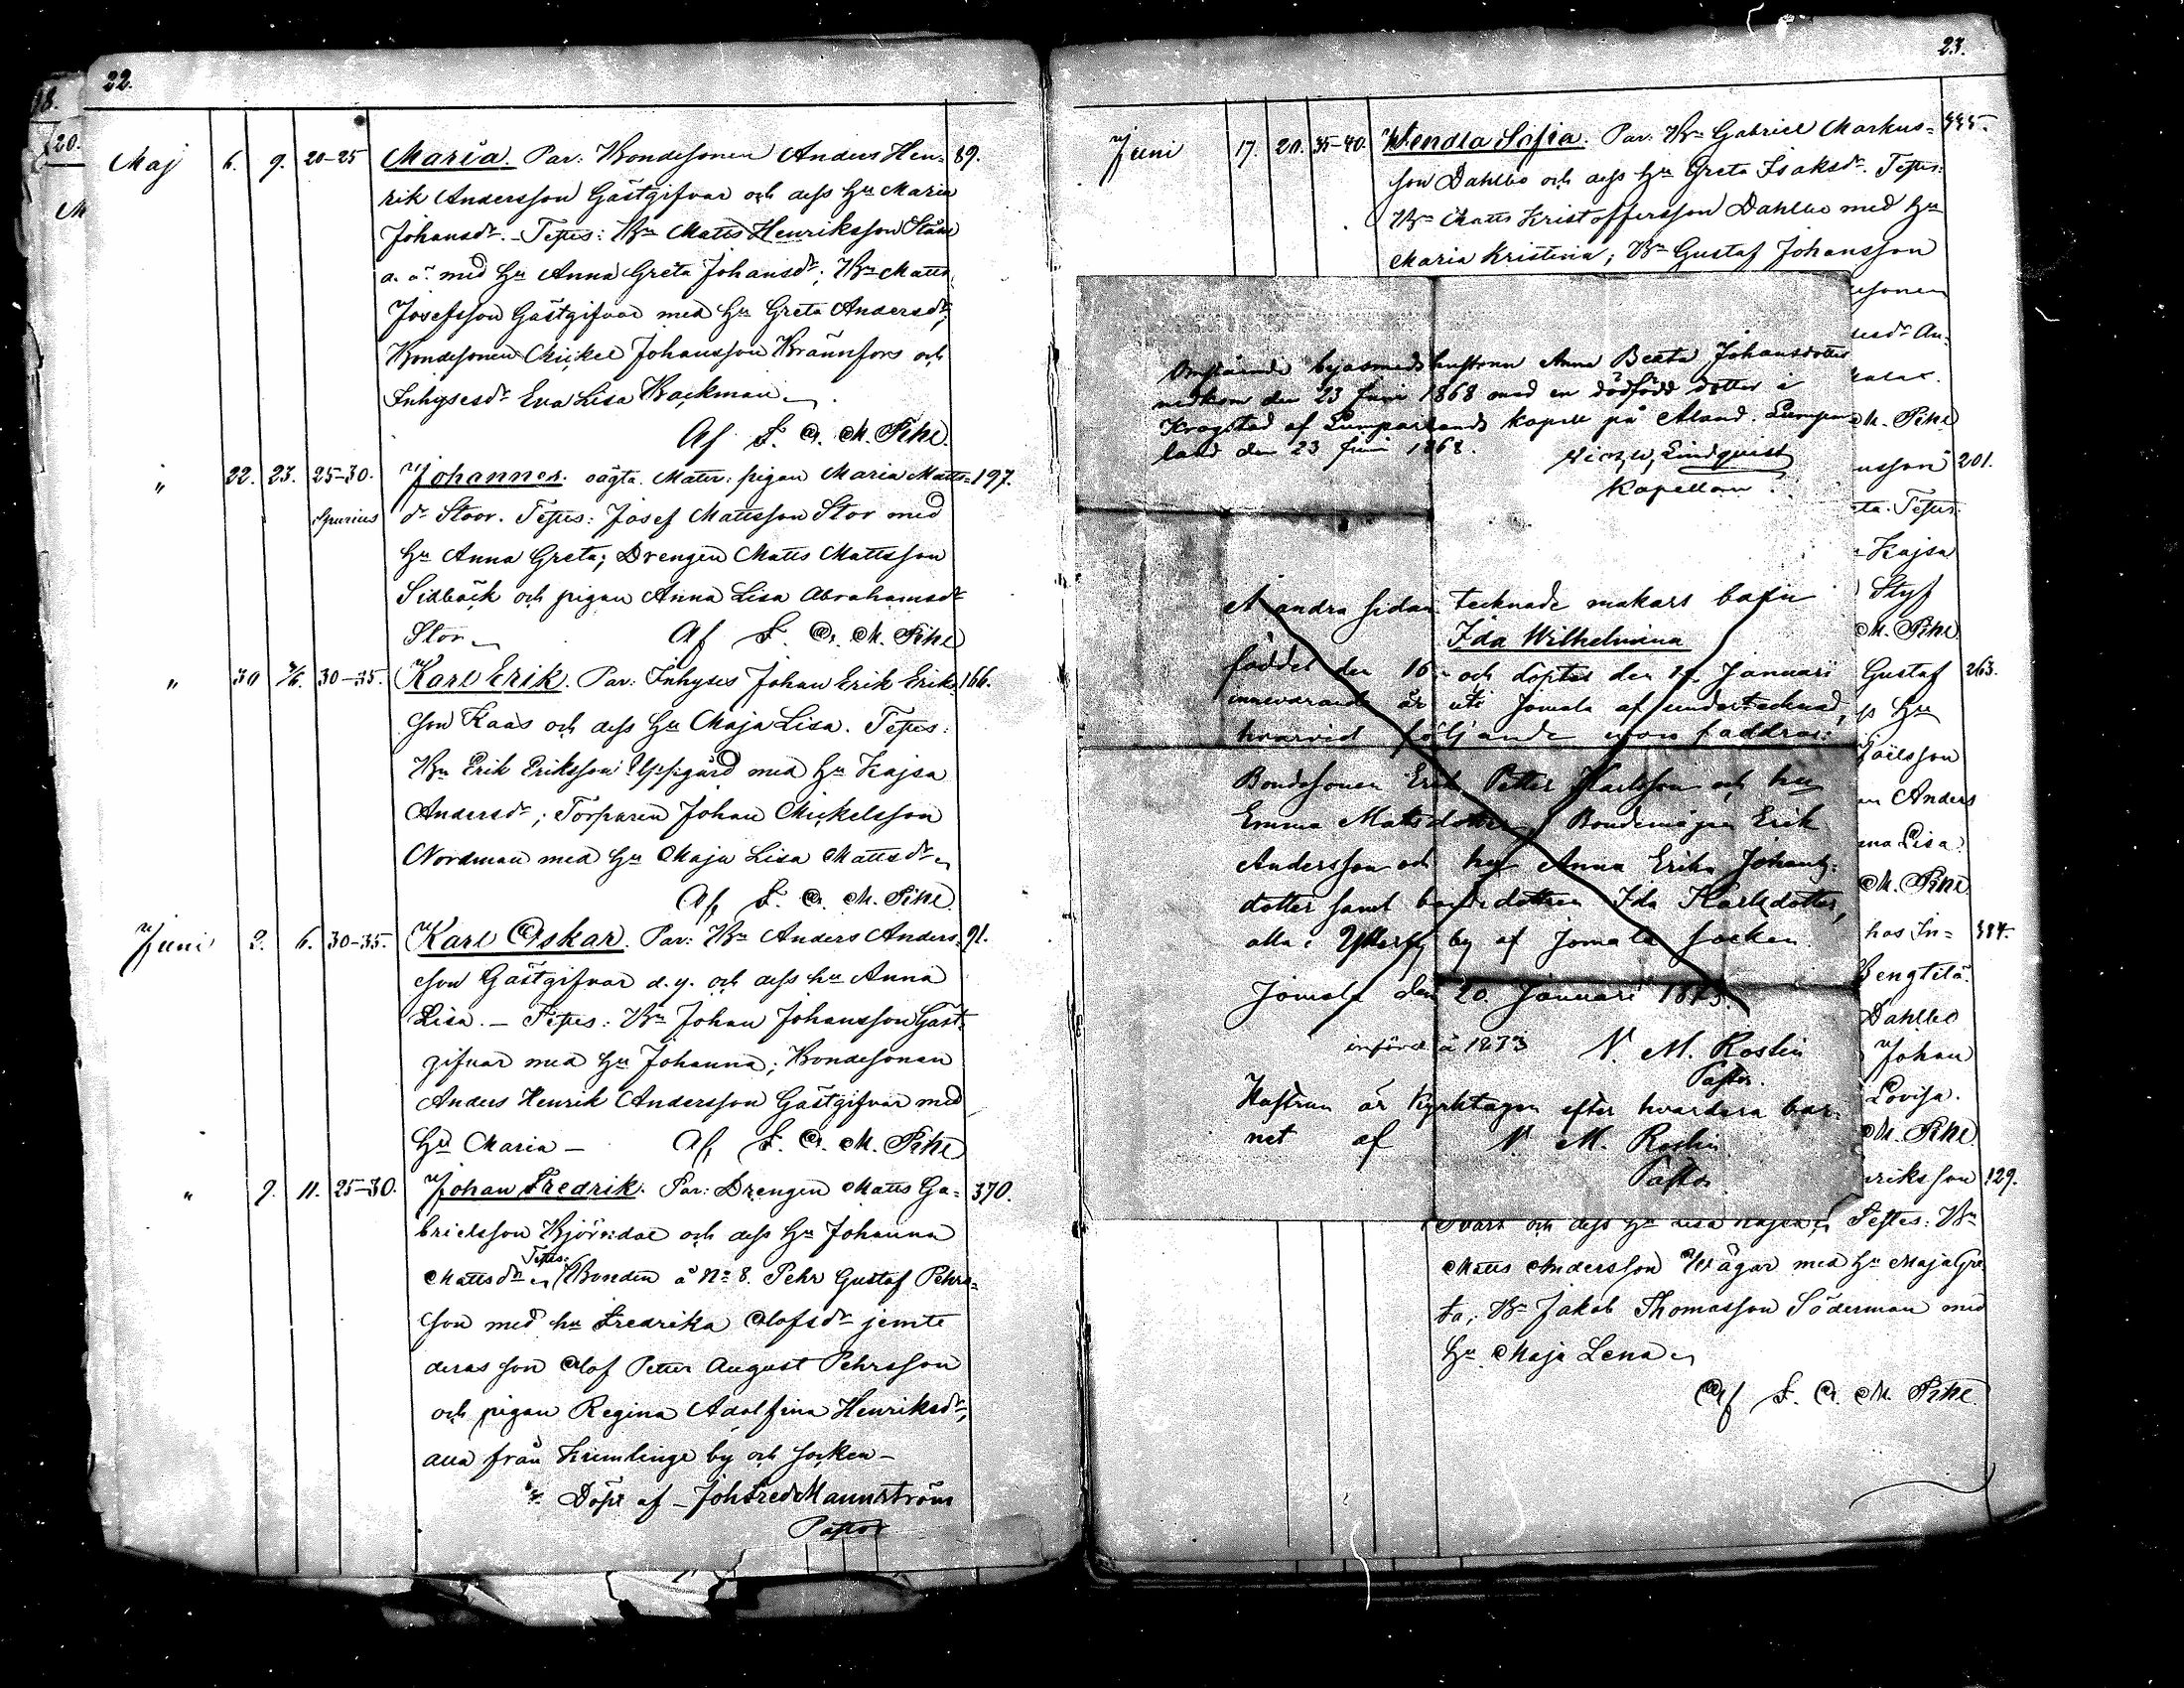 22.
18.
20.
M
Maj 6. 9. 20-25 Maria. Par: Bondesonen Anders Hen= 89.
rik Andersson Gästgifvar och dess Hu Maria
Johansdr. – Testes: Bn Matts Henriksson Ståhl
a. ä. med Hu Anna Greta Johansdr; Bn Matts
Josefsson Gästgifvar med Hu Greta Andersdr;
Bondesonen Mickel Johansson Brännfors och
Inhysesdr Eva Lisa Backman
Af F. O. M. Pihl.
" 22. 23. 25-30. Johannes. oägta. Mater: pigan Maria Matts= 197.
Spurius dr Stoor. Testes: Josef Mattsson Stor med
Hu Anna Greta; Drengen Matts Mattsson
Sidbäck och pigan Anna Lisa Abrahamsdr
Stor Af F. O. M. Pihl
" 30 2/6. 30-35. Karl Erik. Par: Inhyses Johan Erik Erik= 166.
son Kaas och dess Hu Maja Lisa. Testes:
Bn Erik Eriksson Uppigård med Hu Kajsa
Andersdr; Torparen Johan Mickelsson
Nordman med Hu Maja Lisa Mattsdr
Af F. O. M. Pihl.
Juni 2. 6. 30-35. Karl Oskar. Par: Bn Anders Anders= 91.
son Gästgifvar d. y. och dess hu Anna
Lisa. – Testes: Bn Johan Johansson Gäst=
gifvar med Hu Johanna; Bondesonen
Anders Henrik Andersson Gästgifvar med
Hu Maria – Af F. O. M. Pihl
" 9. 11. 25-30. Johan Fredrik. Par: Drengen Matts Ga= 370.
brielsson Björndal och dess Hu Johanna
Testes:
Mattsdr Bonden å No 8. Pehr Gustaf Pehrs=
son med hu Fredrika Olofsdr jemte
deras son Olof Petter August Pehrsson
och pigan Regina Adolfina Henriksdr,
alla från Kumlinge by och socken –
Döpt af – Joh Fred Mannström
Pastor
23.
Juni 17. 20. 35-40. Wendla Sofia. Par: Bn Gabriel Markus= 335.
son Dahlbo och dess Hu Greta Isaksdr. Testes:
Bn Matts Kristoffersson Dahlbo med Hu
Maria Kristina; Bn Gustaf Johansson
esonen
esdr An=
M. Pihl
usson 201.
ta. Testes.
Kajsa
Styf
M. Pihl
Gustaf 263.
ss Hu
Joelsson
Anders
na Lisa.
M. Pihl
hos In= 384.
Bengtilä.
Dahlbo
Johan
Lovisa.
M. Pihl
nriksson 129.
Omstående byasmeds hustrun Anna Beata Johansdotter
nedkom den 23 Juni 1868 med en dödfödd dotter i
Krogstad af Lumparlands kapell på Åland. Lumpar=
land den 23 Juni 1868.
Lindquist
Kapellan.
Å andra sidan tecknade makars barn
Ida Wilhelmina
föddes den 16 och döptes den 19 Januari
innevarande år uti Jomala af undertecknad,
hvarvid följande voro faddrar:
Bondesonen Erik Petter Karlsson och hu
Emma Mattsdotter, Bondemågen Erik
Andersson och hu Anna Erika Johans=
dotter samt bondedottren Ida Karlsdotter,
alla i Ytterby by af Jomala socken.
Jomala den 20 Januari 1873.
införd å 1873 N. M. Roslin
Pastor.
Hustrun är kyrktagen efter hvardera bar=
net af N. M. Roslin
Pastor.
Svart och dess Hu Lisa Kajsa Testes: Bn
Matts Andersson Wägar med Hu Maja Gre=
ta; Bn Jakob Thomasson Söderman med
Hu Maja Lena
Af F. O. M. Pihl.